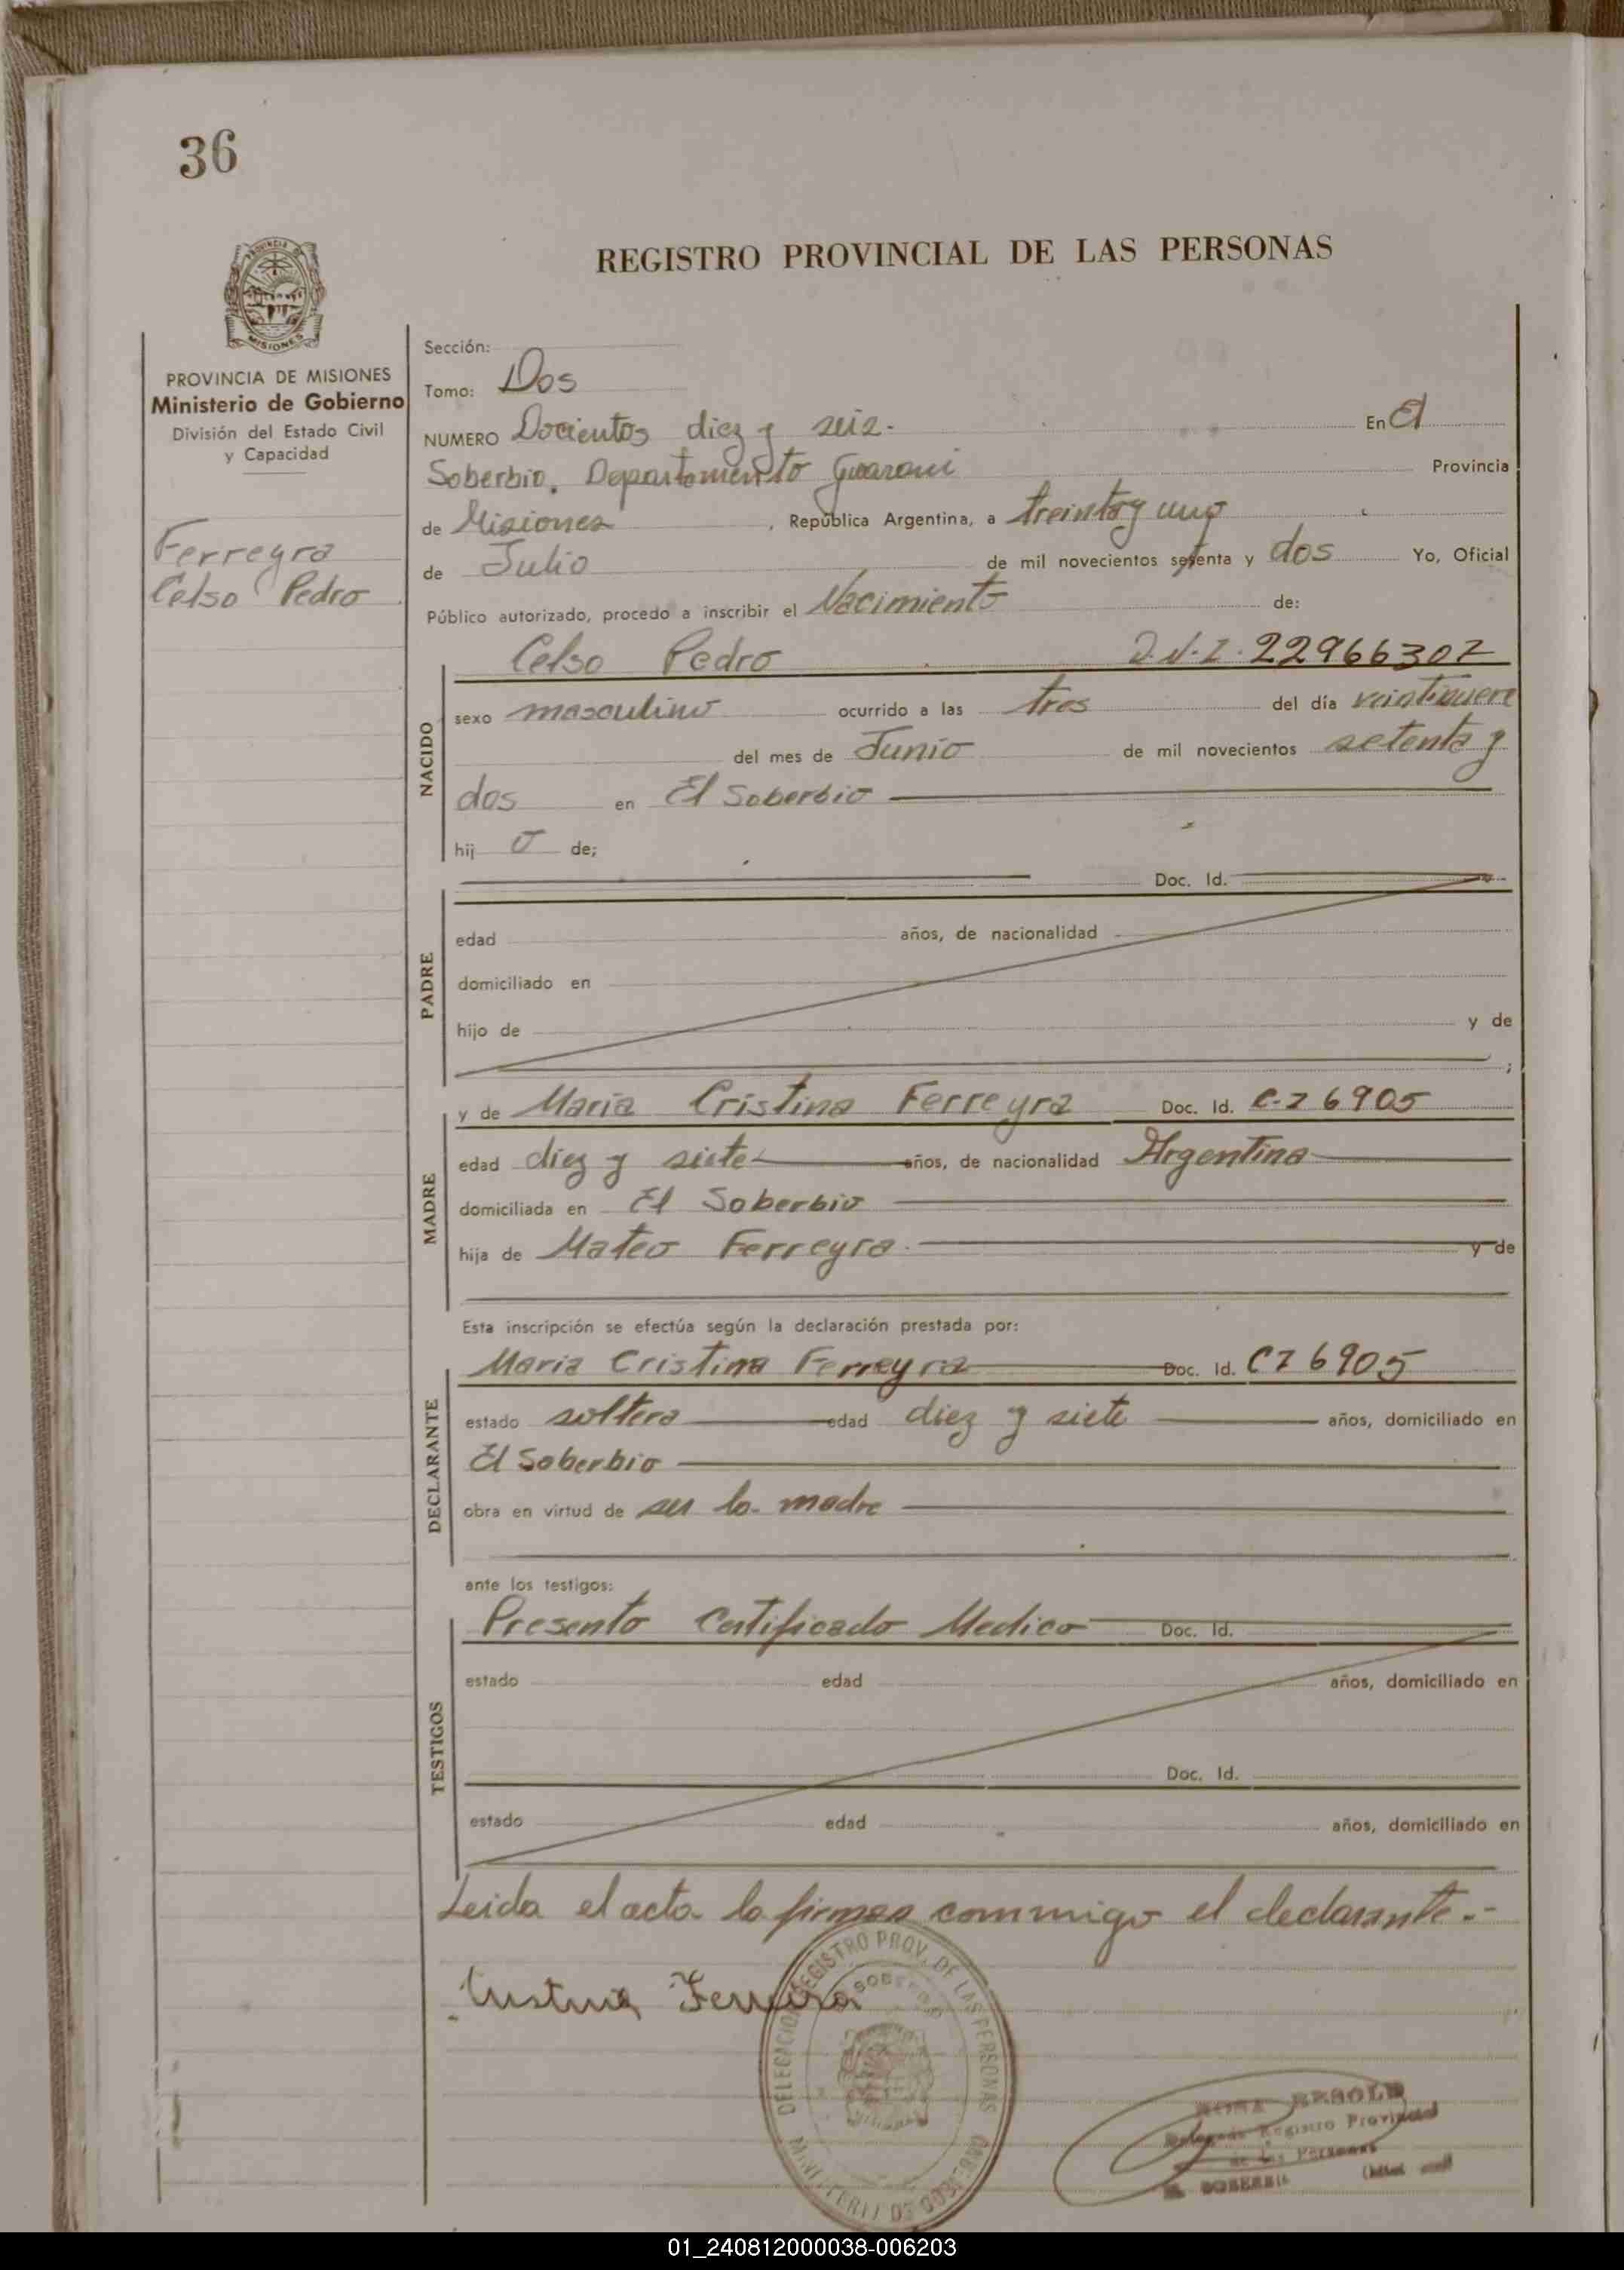 36
REGISTRO PROVINCIAL DE LAS PERSONAS
PROVINCIA DE MISIONES
Ministerio de Gobierno
División del Estado Civil
y Capacidad
Ferreyra
Celso Pedro
Sección:
Tomo: Dos
NUMERO Docientos diez y seis.- En El
Soberbio. Departamento Guarani Provincia
de Misiones, República Argentina, a treinta y uno
de Julio de mil novecientos setenta y dos Yo, Oficial
Público autorizado, procedo a inscribir el Nacimiento de:
Celso Pedro D.N.I. 22966307
NACIDO
sexo masculino ocurrido a las tres del día veintinueve
del mes de Junio de mil novecientos setenta y
dos en El Soberbio
hij o de;
PADRE
Doc. Id.
edad años, de nacionalidad
domiciliado en
hijo de y de
;
MADRE
y de Maria Cristina Ferreyra Doc. Id. C-76905
edad diez y siete años, de nacionalidad Argentina
domiciliada en El Soberbio
hija de Mateo Ferreyra. y de
Esta inscripción se efectúa según la declaración prestada por:
DECLARANTE
Maria Cristina Ferreyra Doc. Id. C76905
estado soltera edad diez y siete años, domiciliado en
El Soberbio
obra en virtud de ser la madre
ante los testigos:
TESTIGOS
Presento Certificado Medico Doc. Id.
estado edad años, domiciliado en
Doc. Id.
estado edad años, domiciliado en
Leida el acta la firman commigo el declarante.-
Cristina Ferreira
DELEGACION REGISTRO PROV. DE LAS PERSONAS
SOBERBIO
Registro Provincial
de las Personas
SOBERBIO
01_240812000038-006203